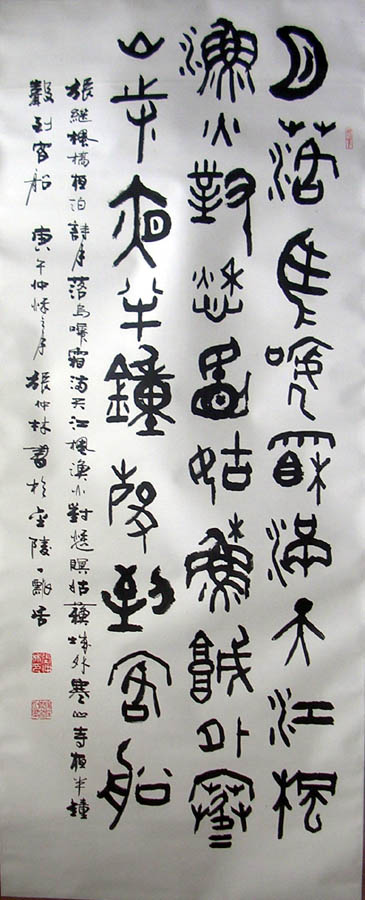 月落烏啼霜滿天江楓
漁火對愁眠姑蘇城外寒
山寺夜半鐘聲到客船
張繼楓橋夜泊詩月落烏啼霜滿天江楓漁火對愁瞑姑蘇城外寒山寺夜半鐘
聲到客船 庚午仲秋之月張仲林書於金陵